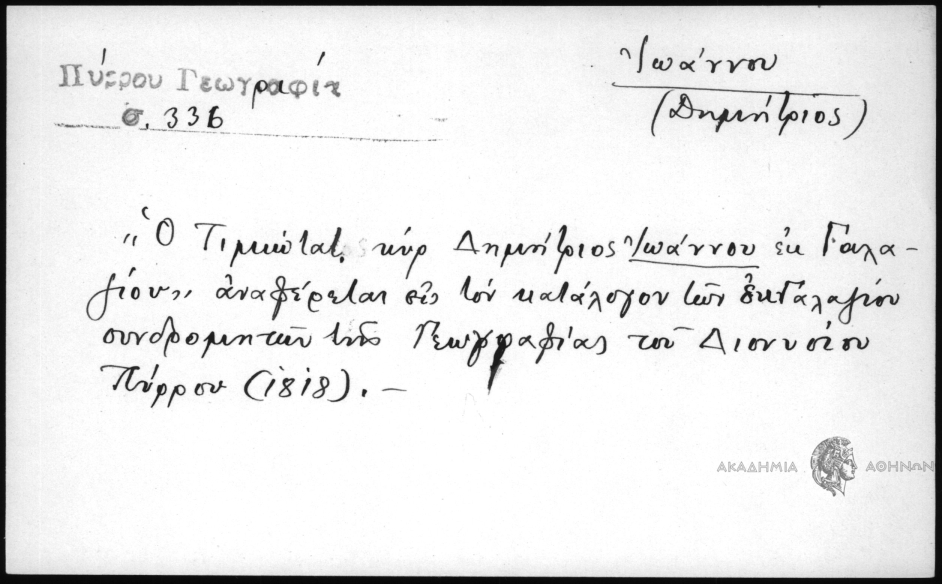 Πύρρου Γεωγραφία
σ. 336
Ἰωάννου
(Δημήτριος)
„Ὁ Τιμιώτατ. κὺρ Δημήτριος Ἰωάννου ἐκ Γαλα-
ζίου„ ἀναφέρεται εἰς τὸν κατάλογον τῶν ἐκ Γαλαζίου
συνδρομητῶν τῆς Γεωγραφίας τοῦ Διονυσίου
Πύρρου (1818). —
ΑΚΑΔΗΜΙΑ ΑΘΗΝΩΝ